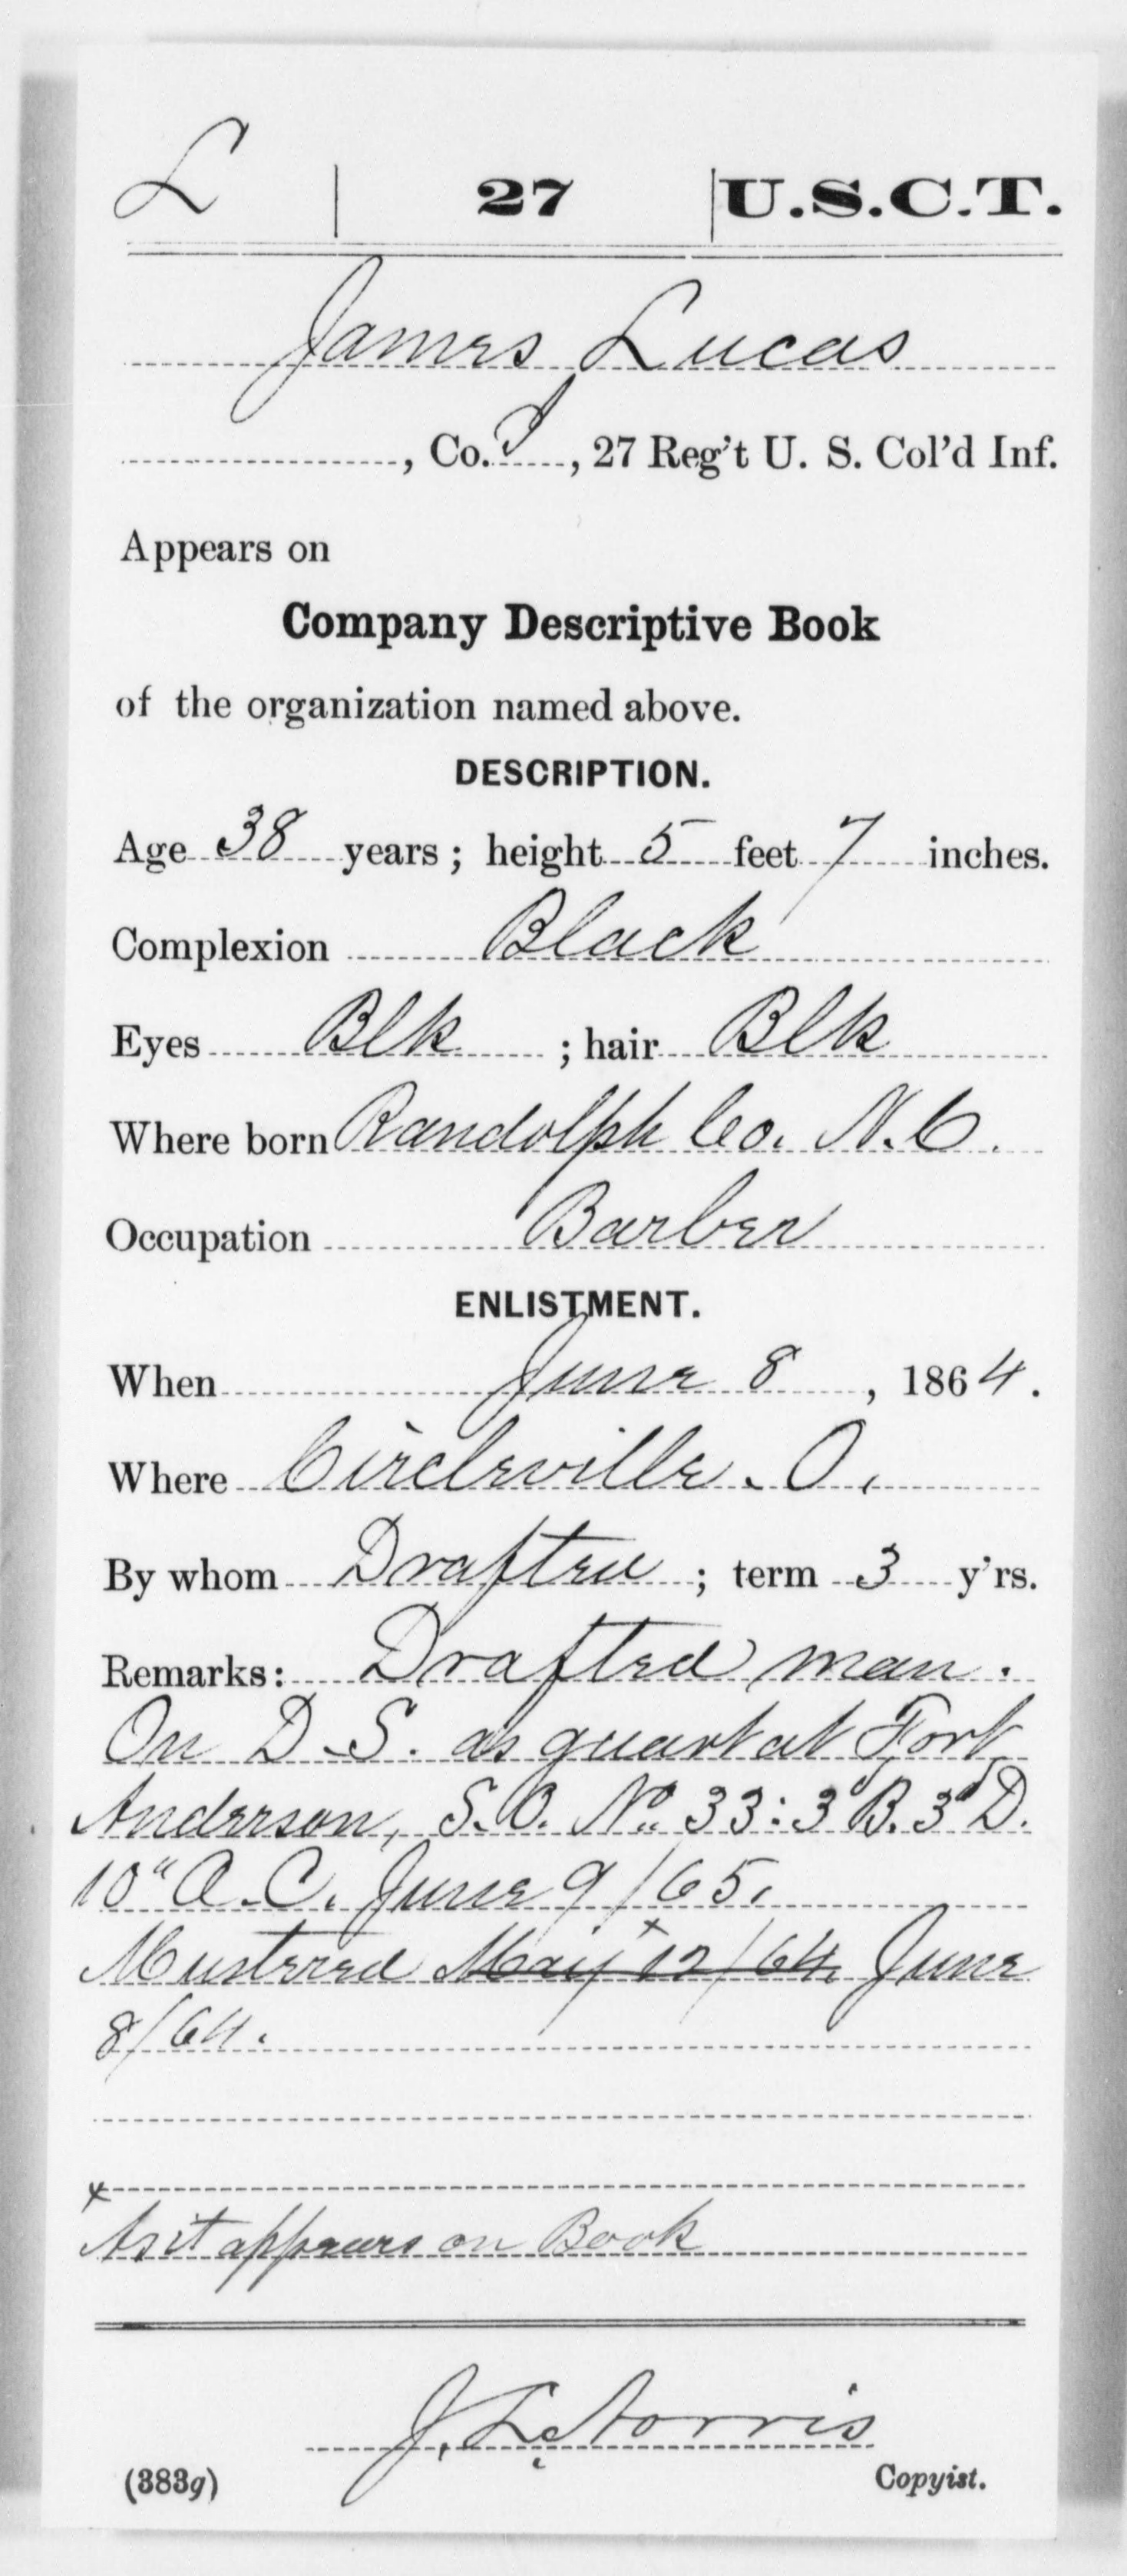 L | 27 | U.S.C.T.
James Lucas
, Co. I, 27 Reg't U. S. Col'd Inf.
Appears on
Company Descriptive Book
of the organization named above.
DESCRIPTION.
Age 38 years; height 5 feet 7 inches.
Complexion Black
Eyes Blk; hair Blk
Where born Randolph Co. N.C.
Occupation Barber
ENLISTMENT.
When June 8, 1864.
Where Circleville. O.
By whom Drafted; term 3 y'rs.
Remarks: Drafted man.
On D.S. as guard at Fort
Anderson, S.O. No. 33: 3d B. 3d D.
10" A.C. June 9/65.
Mustered May 12/64, x June
8/64.
x
As it appears on Book
Morris
(383g) Copyist.